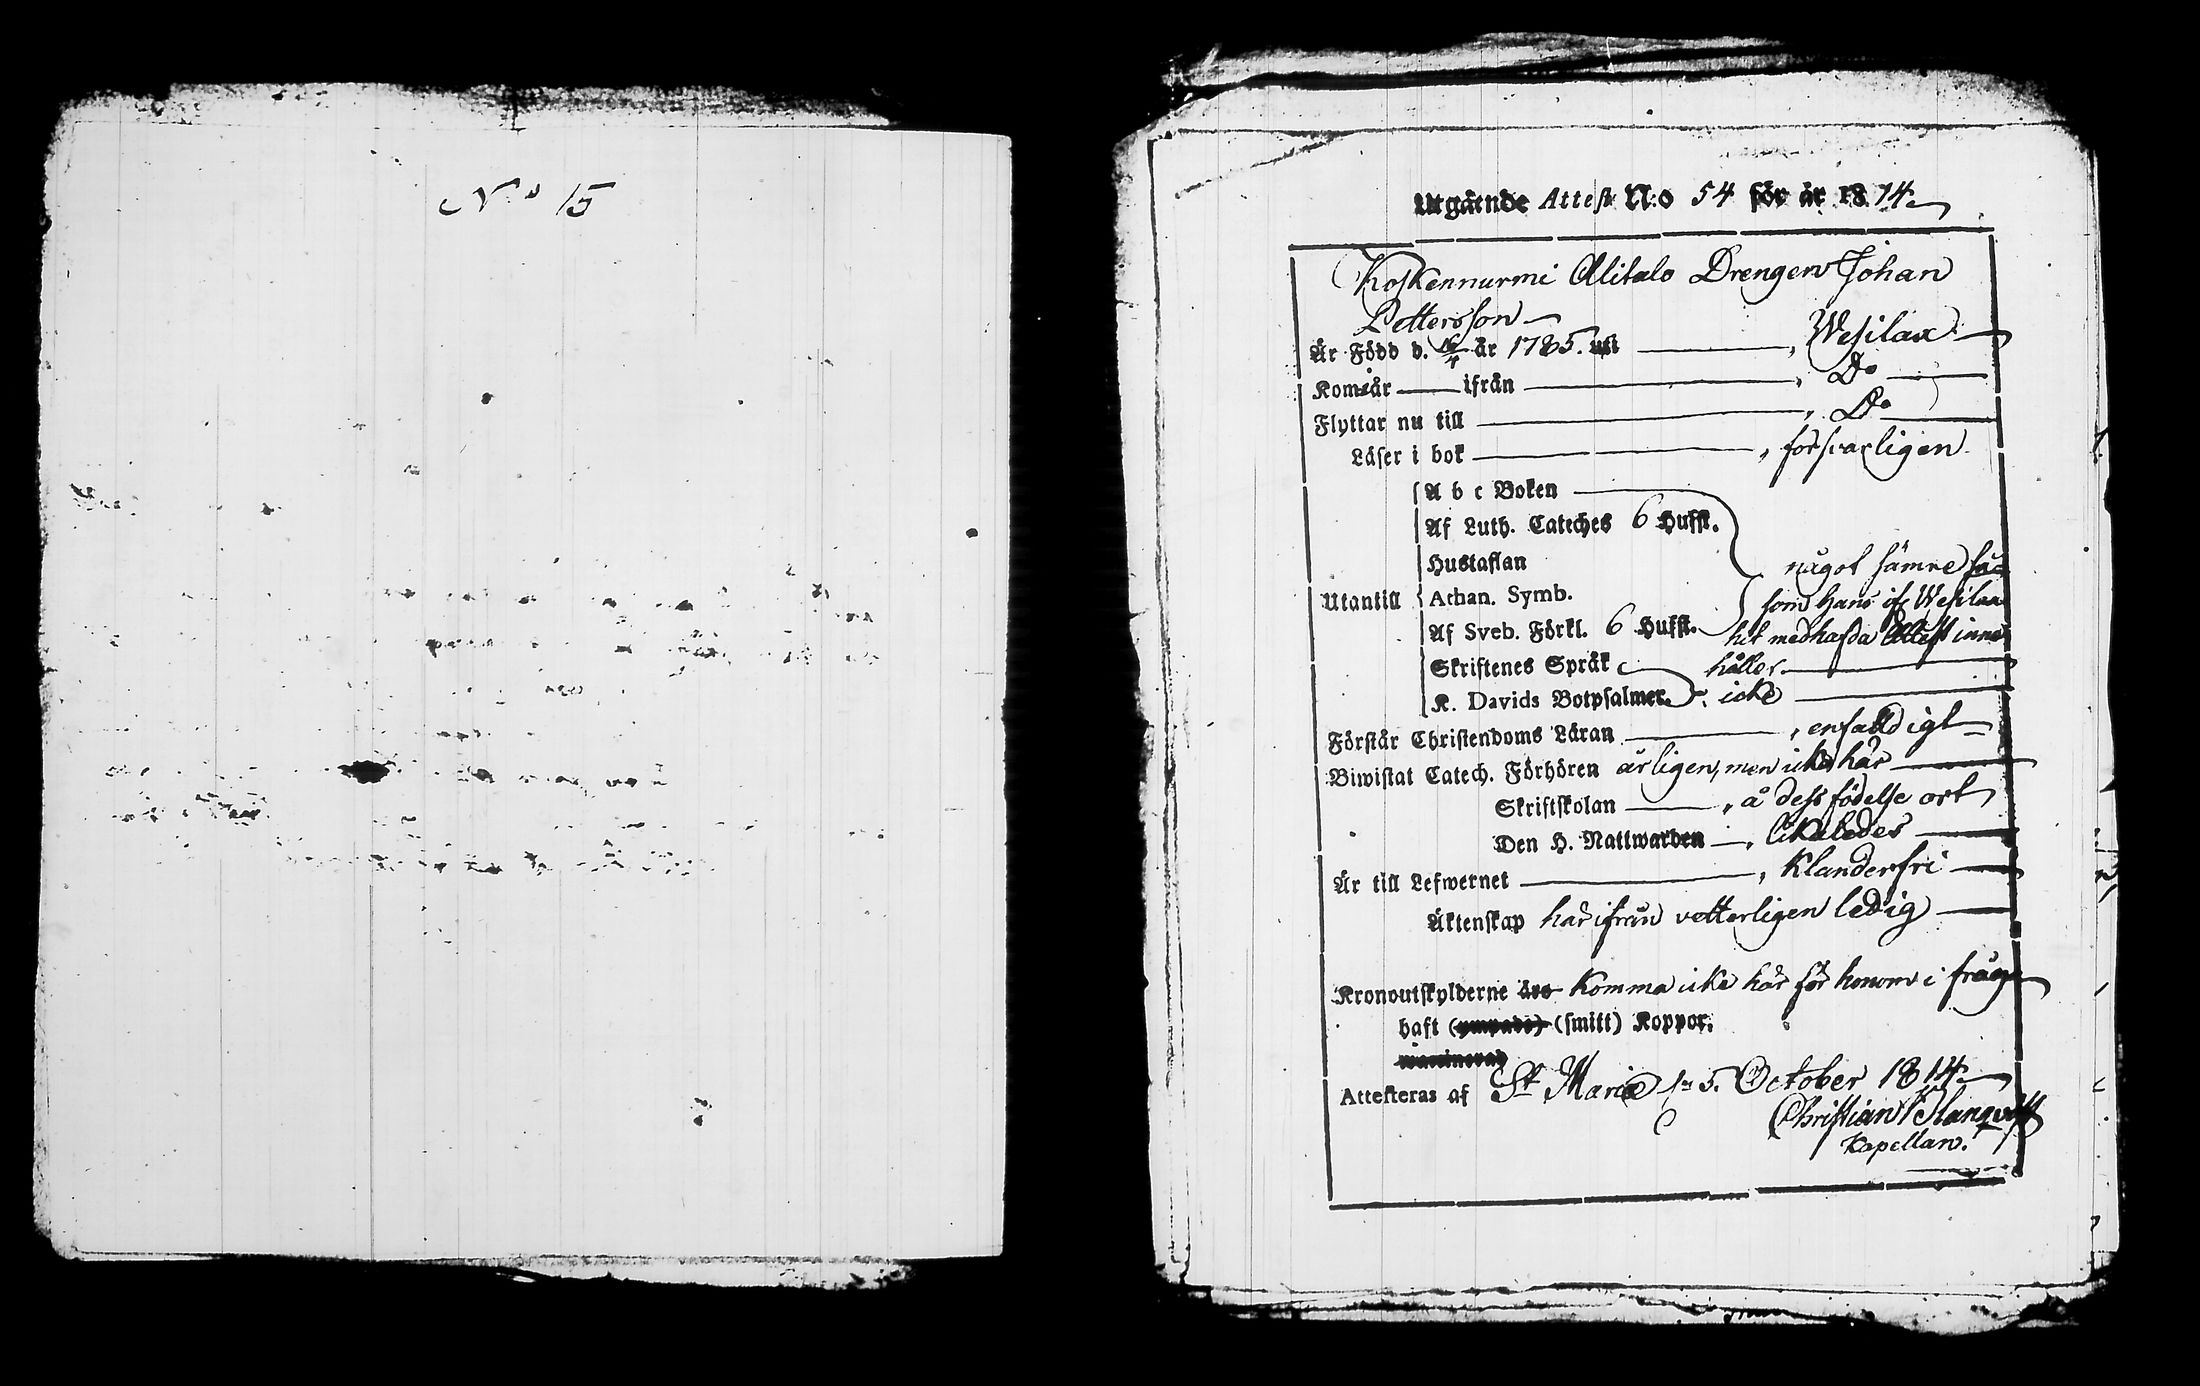 No 15
Utgående Attest N:o 54 för år 1814.
Koskennurmi Alitalo Drengen Johan
Pettersson
Är Född d. 16/4 år 1785. uti — , Wesilax
Kom år — ifrån — , Do
Flyttar nu till — , Do
Läser i bok — , försvarligen
A b c Boken
Af Luth. Cateches 6 Hufst.
Hustaflan
något sämre
Utantill
Athan. Symb.
som hans ifr Wesilax
Af Sveb. Förkl. 6 Hufst.
hit medhafda Attest inne
Skriftenes Språk
håller.
K. Davids Botpsalmer. icke
Förstår Christendoms Läran — , enfaldigt
Biwistat Catech. Förhören årligen, men icke här
Skriftskolan — , å dess födelse ort
Den H. Nattwarden — , likaledes
Är till Lefwernet — , Klanderfri
Äktenskap härifrån vetterligen ledig
Kronoutskylderne äro Komma icke här för honom i fråga
haft (ympade) (smitt) Koppor.
waccinerad
Attesteras af St Mariæ d. 5. October 1814.
Christian
Kapellan.